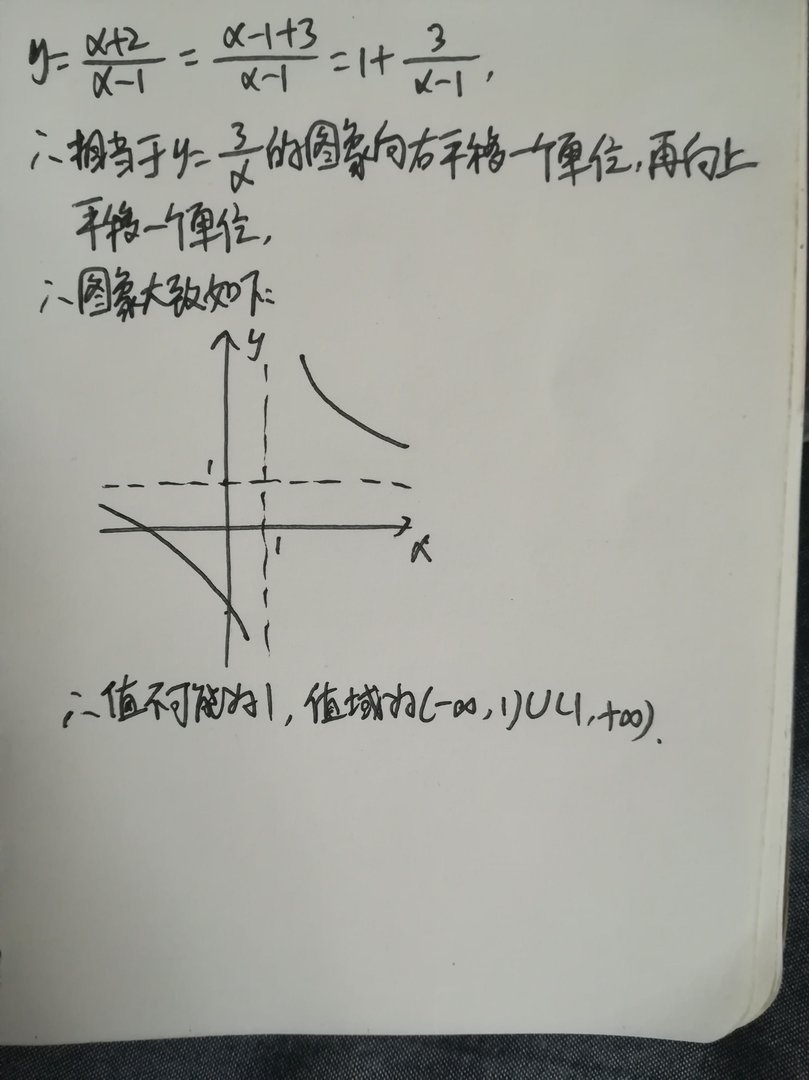 y = (x+2)/(x-1) = (x-1+3)/(x-1) = 1 + 3/(x-1),
∴相当于 y = 3/x 的图象向右平移一个单位,再向上
平移一个单位,
∴图象大致如下:
y
1
1
x
∴值不可能为1,值域为(-∞,1)∪(1,+∞).